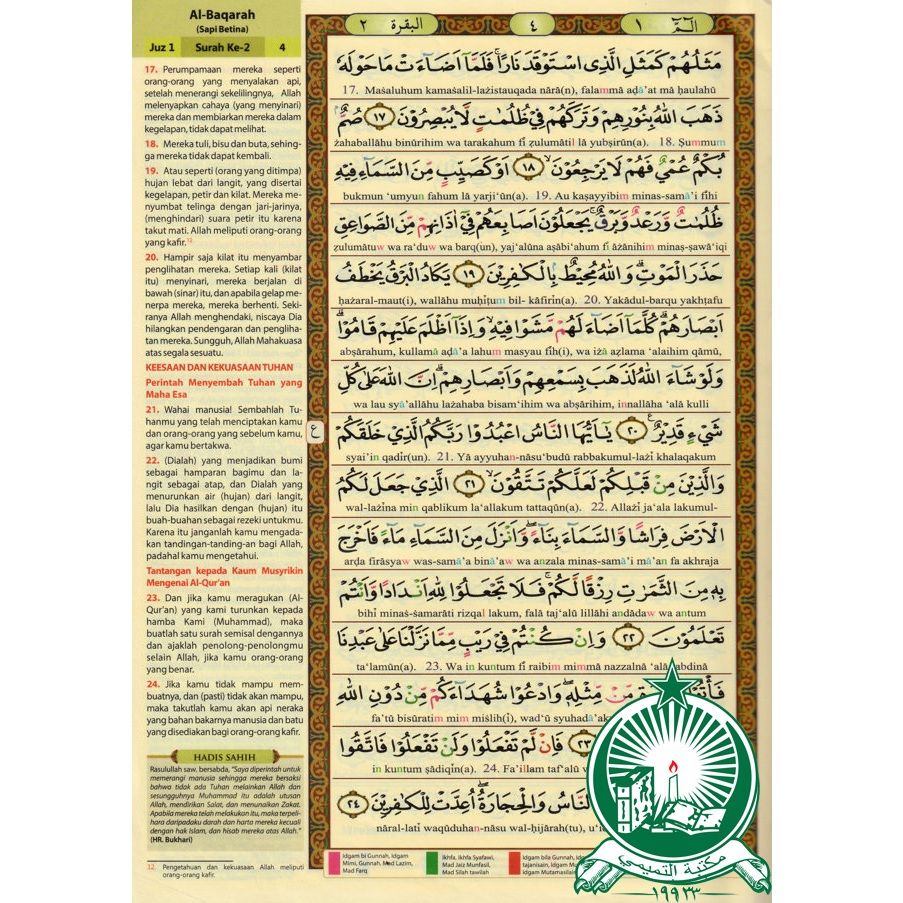 Al-Baqarah
(Sapi Betina)
Juz 1 Surah Ke-2 4
17. Perumpamaan mereka seperti
orang-orang yang menyalakan api,
setelah menerangi sekelilingnya, Allah
melenyapkan cahaya (yang menyinari)
mereka dan membiarkan mereka dalam
kegelapan, tidak dapat melihat.
18. Mereka tuli, bisu dan buta, sehing-
ga mereka tidak dapat kembali.
19. Atau seperti (orang yang ditimpa)
hujan lebat dari langit, yang disertai
kegelapan, petir dan kilat. Mereka me-
nyumbat telinga dengan jari-jarinya,
(menghindari) suara petir itu karena
takut mati. Allah meliputi orang-orang
yang kafir.12
20. Hampir saja kilat itu menyambar
penglihatan mereka. Setiap kali (kilat
itu) menyinari, mereka berjalan di
bawah (sinar) itu, dan apabila gelap me-
nerpa mereka, mereka berhenti. Seki-
ranya Allah menghendaki, niscaya Dia
hilangkan pendengaran dan pengliha-
tan mereka. Sungguh, Allah Mahakuasa
atas segala sesuatu.
KEESAAN DAN KEKUASAAN TUHAN
Perintah Menyembah Tuhan yang
Maha Esa
21. Wahai manusia! Sembahlah Tu-
hanmu yang telah menciptakan kamu
dan orang-orang yang sebelum kamu,
agar kamu bertakwa.
22. (Dialah) yang menjadikan bumi
sebagai hamparan bagimu dan la-
ngit sebagai atap, dan Dialah yang
menurunkan air (hujan) dari langit,
lalu Dia hasilkan dengan (hujan) itu
buah-buahan sebagai rezeki untukmu.
Karena itu janganlah kamu mengada-
kan tandingan-tanding-an bagi Allah,
padahal kamu mengetahui.
Tantangan kepada Kaum Musyrikin
Mengenai Al-Qur'an
23. Dan jika kamu meragukan (Al-
Qur'an) yang kami turunkan kepada
hamba Kami (Muhammad), maka
buatlah satu surah semisal dengannya
dan ajaklah penolong-penolongmu
selain Allah, jika kamu orang-orang
yang benar.
24. Jika kamu tidak mampu mem-
buatnya, dan (pasti) tidak akan mampu,
maka takutlah kamu akan api neraka
yang bahan bakarnya manusia dan batu
yang disediakan bagi orang-orang kafir.
HADIS SAHIH
Rasulullah saw. bersabda, "Saya diperintah untuk
memerangi manusia sehingga mereka bersaksi
bahwa tidak ada Tuhan melainkan Allah dan
sesungguhnya Muhammad itu adalah utusan
Allah, mendirikan Salat, dan menunaikan Zakat.
Apabila mereka telah melakukan itu, maka terpeli-
hara daripadaku darah dan harta mereka kecuali
dengan hak Islam, dan hisab mereka atas Allah."
(HR. Bukhari)
12 Pengetahuan dan kekuasaan Allah meliputi
orang-orang kafir.
الٓمّٓ ١ ٤ البقرة ٢
مَثَلُهُمْ كَمَثَلِ الَّذِى اسْتَوْقَدَ نَارًاۚ فَلَمَّآ اَضَاۤءَتْ مَا حَوْلَهٗ
17. Maṡaluhum kamaṡalil-lażistauqada nārā(n), falammā aḍā'at mā ḥaulahū
ذَهَبَ اللّٰهُ بِنُوْرِهِمْ وَتَرَكَهُمْ فِيْ ظُلُمٰتٍ لَّا يُبْصِرُوْنَ ١٧ صُمٌّۢ
żahaballāhu binūrihim wa tarakahum fī ẓulumātil lā yubṣirūn(a). 18. Ṣummum
بُكْمٌ عُمْيٌ فَهُمْ لَا يَرْجِعُوْنَۙ ١٨ اَوْ كَصَيِّبٍ مِّنَ السَّمَاۤءِ فِيْهِ
bukmun 'umyun fahum lā yarji'ūn(a). 19. Au kaṣayyibim minas-samā'i fīhi
ظُلُمٰتٌ وَّرَعْدٌ وَّبَرْقٌۚ يَجْعَلُوْنَ اَصَابِعَهُمْ فِيْٓ اٰذَانِهِمْ مِّنَ الصَّوَاعِقِ
ẓulumātuw wa ra'duw wa barq(un), yaj'alūna aṣābi'ahum fī āżānihim minaṣ-ṣawā'iqi
حَذَرَ الْمَوْتِۗ وَاللّٰهُ مُحِيْطٌۢ بِالْكٰفِرِيْنَ ١٩ يَكَادُ الْبَرْقُ يَخْطَفُ
ḥażaral-maut(i), wallāhu muḥīṭum bil- kāfirīn(a). 20. Yakādul-barqu yakhṭafu
اَبْصَارَهُمْۗ كُلَّمَآ اَضَاۤءَ لَهُمْ مَّشَوْا فِيْهِۙ وَاِذَآ اَظْلَمَ عَلَيْهِمْ قَامُوْاۗ
abṣārahum, kullamā aḍā'a lahum masyau fīh(i), wa iżā aẓlama 'alaihim qāmū,
وَلَوْ شَاۤءَ اللّٰهُ لَذَهَبَ بِسَمْعِهِمْ وَاَبْصَارِهِمْۗ اِنَّ اللّٰهَ عَلٰى كُلِّ
wa lau syā'allāhu lażahaba bisam'ihim wa abṣārihim, innallāha 'alā kulli
ع
شَيْءٍ قَدِيْرٌ ٢٠ يٰٓاَيُّهَا النَّاسُ اعْبُدُوْا رَبَّكُمُ الَّذِيْ خَلَقَكُمْ
syai'in qadīr(un). 21. Yā ayyuhan-nāsu'budū rabbakumul-lażī khalaqakum
وَالَّذِيْنَ مِنْ قَبْلِكُمْ لَعَلَّكُمْ تَتَّقُوْنَۙ ٢١ الَّذِيْ جَعَلَ لَكُمُ
wal-lażīna min qablikum la'allakum tattaqūn(a). 22. Allażī ja'ala lakumul-
الْاَرْضَ فِرَاشًا وَّالسَّمَاۤءَ بِنَاۤءًۖ وَّاَنْزَلَ مِنَ السَّمَاۤءِ مَاۤءً فَاَخْرَجَ
arḍa firāsyaw was-samā'a binā'aw wa anzala minas-samā'i mā'an fa akhraja
بِهٖ مِنَ الثَّمَرٰتِ رِزْقًا لَّكُمْۚ فَلَا تَجْعَلُوْا لِلّٰهِ اَنْدَادًا وَّاَنْتُمْ
bihī minaṡ-ṡamarāti rizqal lakum, falā taj'alū lillāhi andādaw wa antum
تَعْلَمُوْنَ ٢٢ وَاِنْ كُنْتُمْ فِيْ رَيْبٍ مِّمَّا نَزَّلْنَا عَلٰى عَبْدِنَا
ta'lamūn(a). 23. Wa in kuntum fī raibim mimmā nazzalnā 'alā 'abdinā
فَأْتُوْا مِّنْ مِّثْلِهٖۖ وَادْعُوْا شُهَدَاۤءَكُمْ مِّنْ دُوْنِ اللّٰهِ
fa'tū bisūratim mim miṡlih(ī), wad'ū syuhadā'
٢٣ فَاِنْ لَّمْ تَفْعَلُوْا وَلَنْ تَفْعَلُوْا فَاتَّقُوا
in kuntum ṣādiqīn(a). 24. Fa'illam taf'alū
النَّاسُ وَالْحِجَارَةُۖ اُعِدَّتْ لِلْكٰفِرِيْنَ ٢٤
nāral-lati waqūduhan-nāsu wal-ḥijārah(tu),
Idgam bi Gunnah, Idgam
Mimi, Gunnah, Mad Lazim,
Mad Farq
Ikhfa, Ikhfa Syafawi,
Mad Jaiz Munfasil,
Mad Silah tawilah
Idgam bila Gunnah, Idgam
مكتبة التميمي
١٩٩٣٣